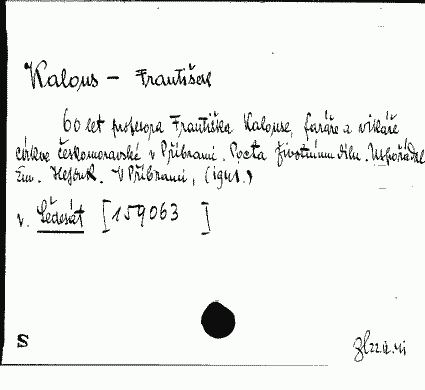 Kalous - František
60 let profesora Františka Kalouse, faráře a vikáře
církve českomoravské v Příbrami. Pocta životnímu dílu. Uspořádal
Em. Hejduk. V Příbrami,
v. Šedesát [159063 ]
S